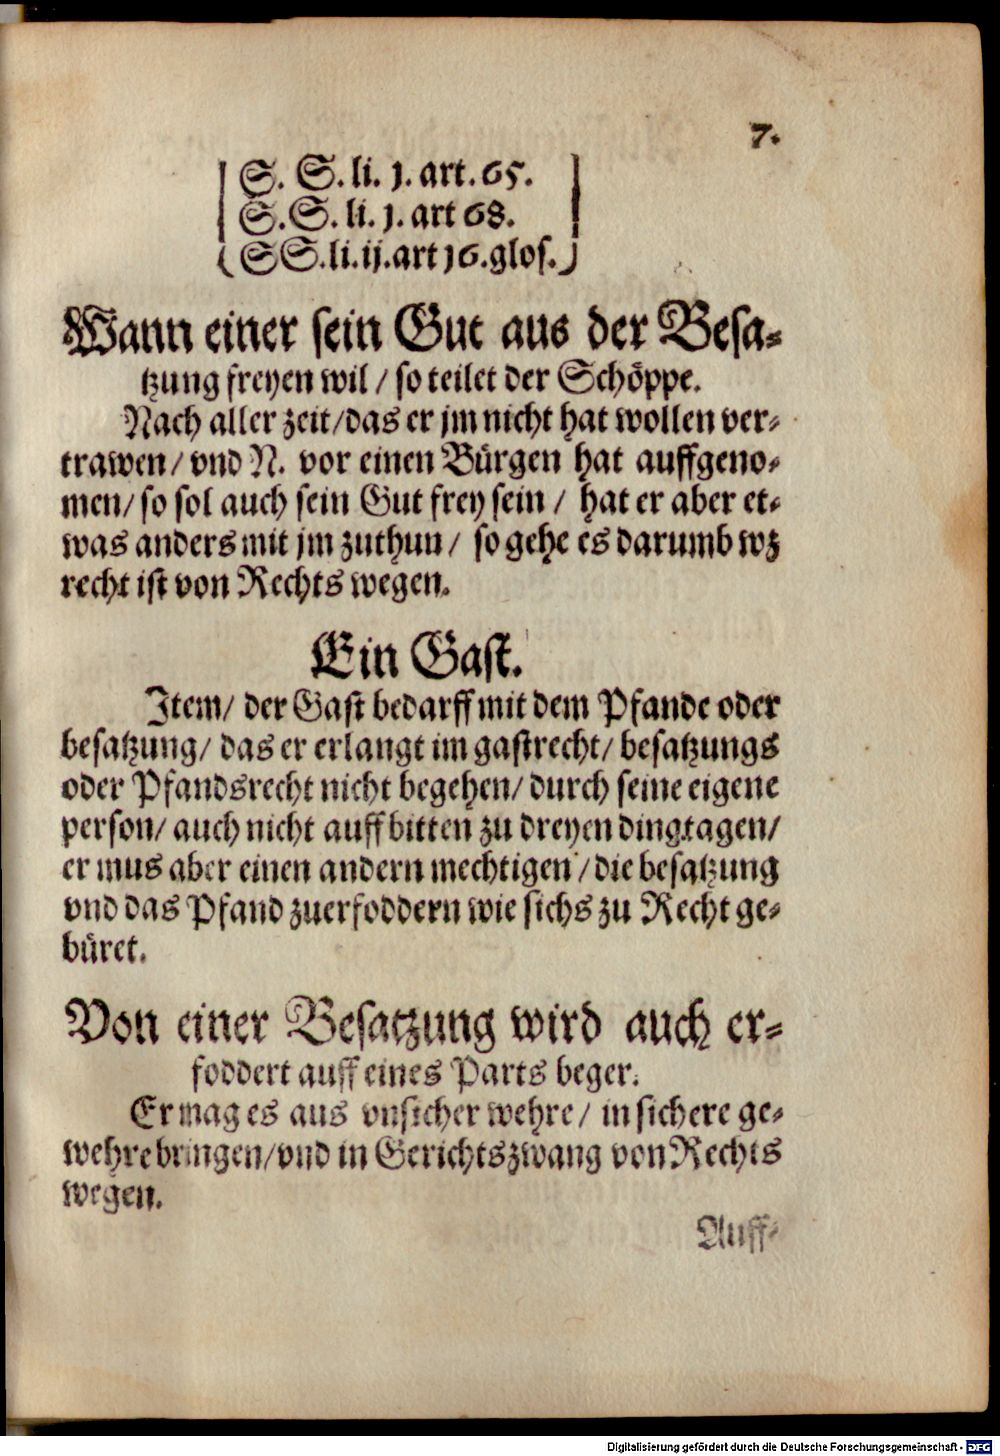 7.
S. S. li. j. art. 65.
S. S. li. j. art 68.
SS. li. ij. art 16. glos.
Wann einer sein Gut aus der Besa-
tzung freyen wil / so teilet der Schöppe.
Nach aller zeit / das er jm nicht hat wollen ver-
trawen / vnd N. vor einen Bürgen hat auffgeno-
men / so sol auch sein Gut frey sein / hat er aber et-
was anders mit jm zuthun / so gehe es darumb wz
recht ist von Rechts wegen.
Ein Gast.
Item / der Gast bedarff mit dem Pfande oder
besatzung / das er erlangt im gastrecht / besatzungs
oder Pfandsrecht nicht begehen / durch seine eigene
person / auch nicht auff bitten zu dreyen dingtagen /
er mus aber einen andern mechtigen / die besatzung
vnd das Pfand zuerfoddern wie sichs zu Recht ge-
büret.
Von einer Besatzung wird auch er-
foddert auff eines Parts beger.
Er mag es aus vnsicher wehre / in sichere ge-
wehre bringen / vnd in Gerichtszwang von Rechts
wegen.
Auff-
Digitalisierung gefördert durch die Deutsche Forschungsgemeinschaft - DFG